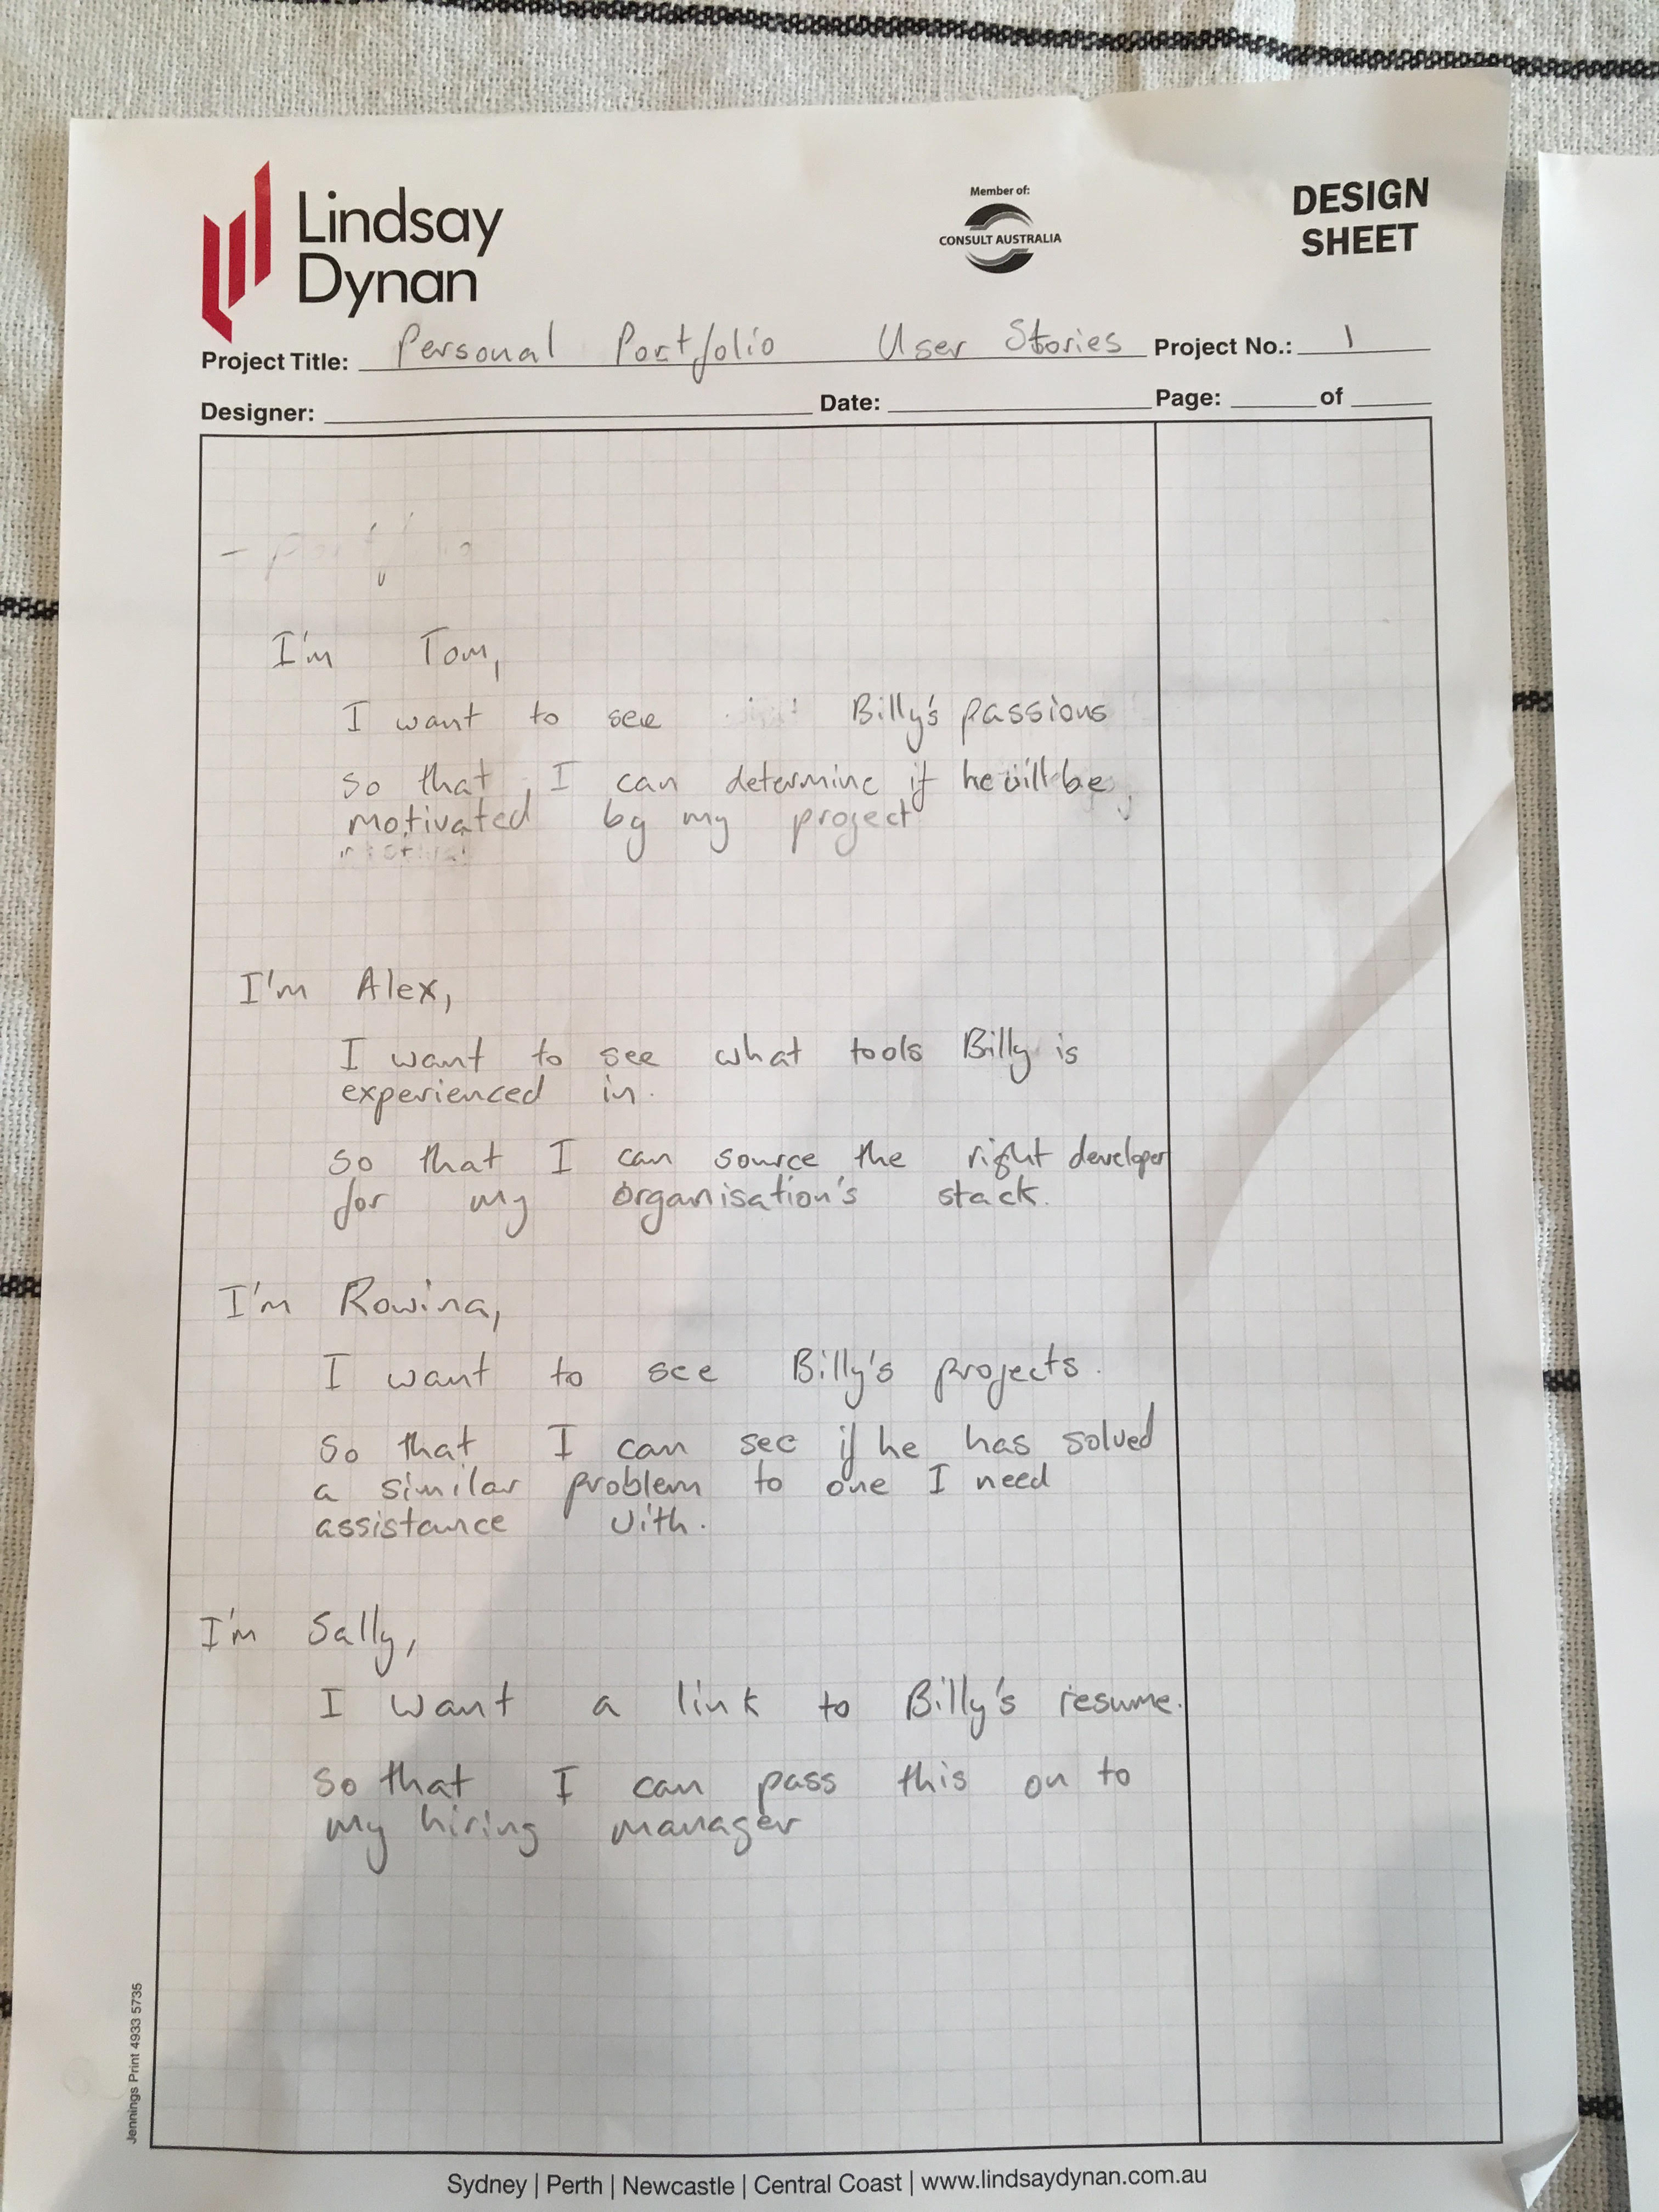 Lindsay
Dynan
Member of:
CONSULT AUSTRALIA
DESIGN
SHEET
Project Title: Personal Portfolio User Stories Project No.: 1
Designer: Date: Page: of
- Portfolio
I'm Tom,
I want to see Billy's passions
so that I can determine if he will be
motivated by my project
I'm Alex,
I want to see what tools Billy is
experienced in.
so that I can source the right developer
for my organisation's stack.
I'm Rowina,
I want to see Billy's projects.
So that I can see if he has solved
a similar problem to one I need
assistance with.
I'm Sally,
I want a link to Billy's resume.
So that I can pass this on to
my hiring manager
Jennings Print 4933 5735
Sydney | Perth | Newcastle | Central Coast | www.lindsaydynan.com.au